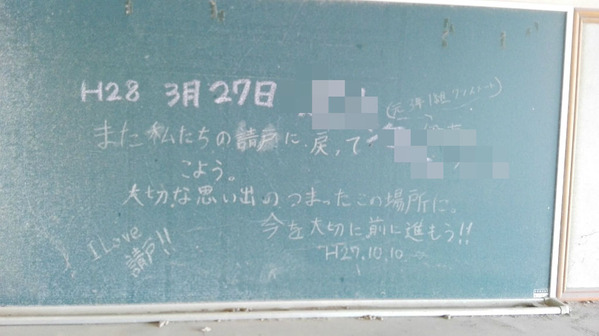 H28 3月27日
また私たちの請戸に戻って
こよう。
大切な思い出のつまったこの場所に。
今を大切に前に進もう!!
H27.10.10
I Love
請戸!!